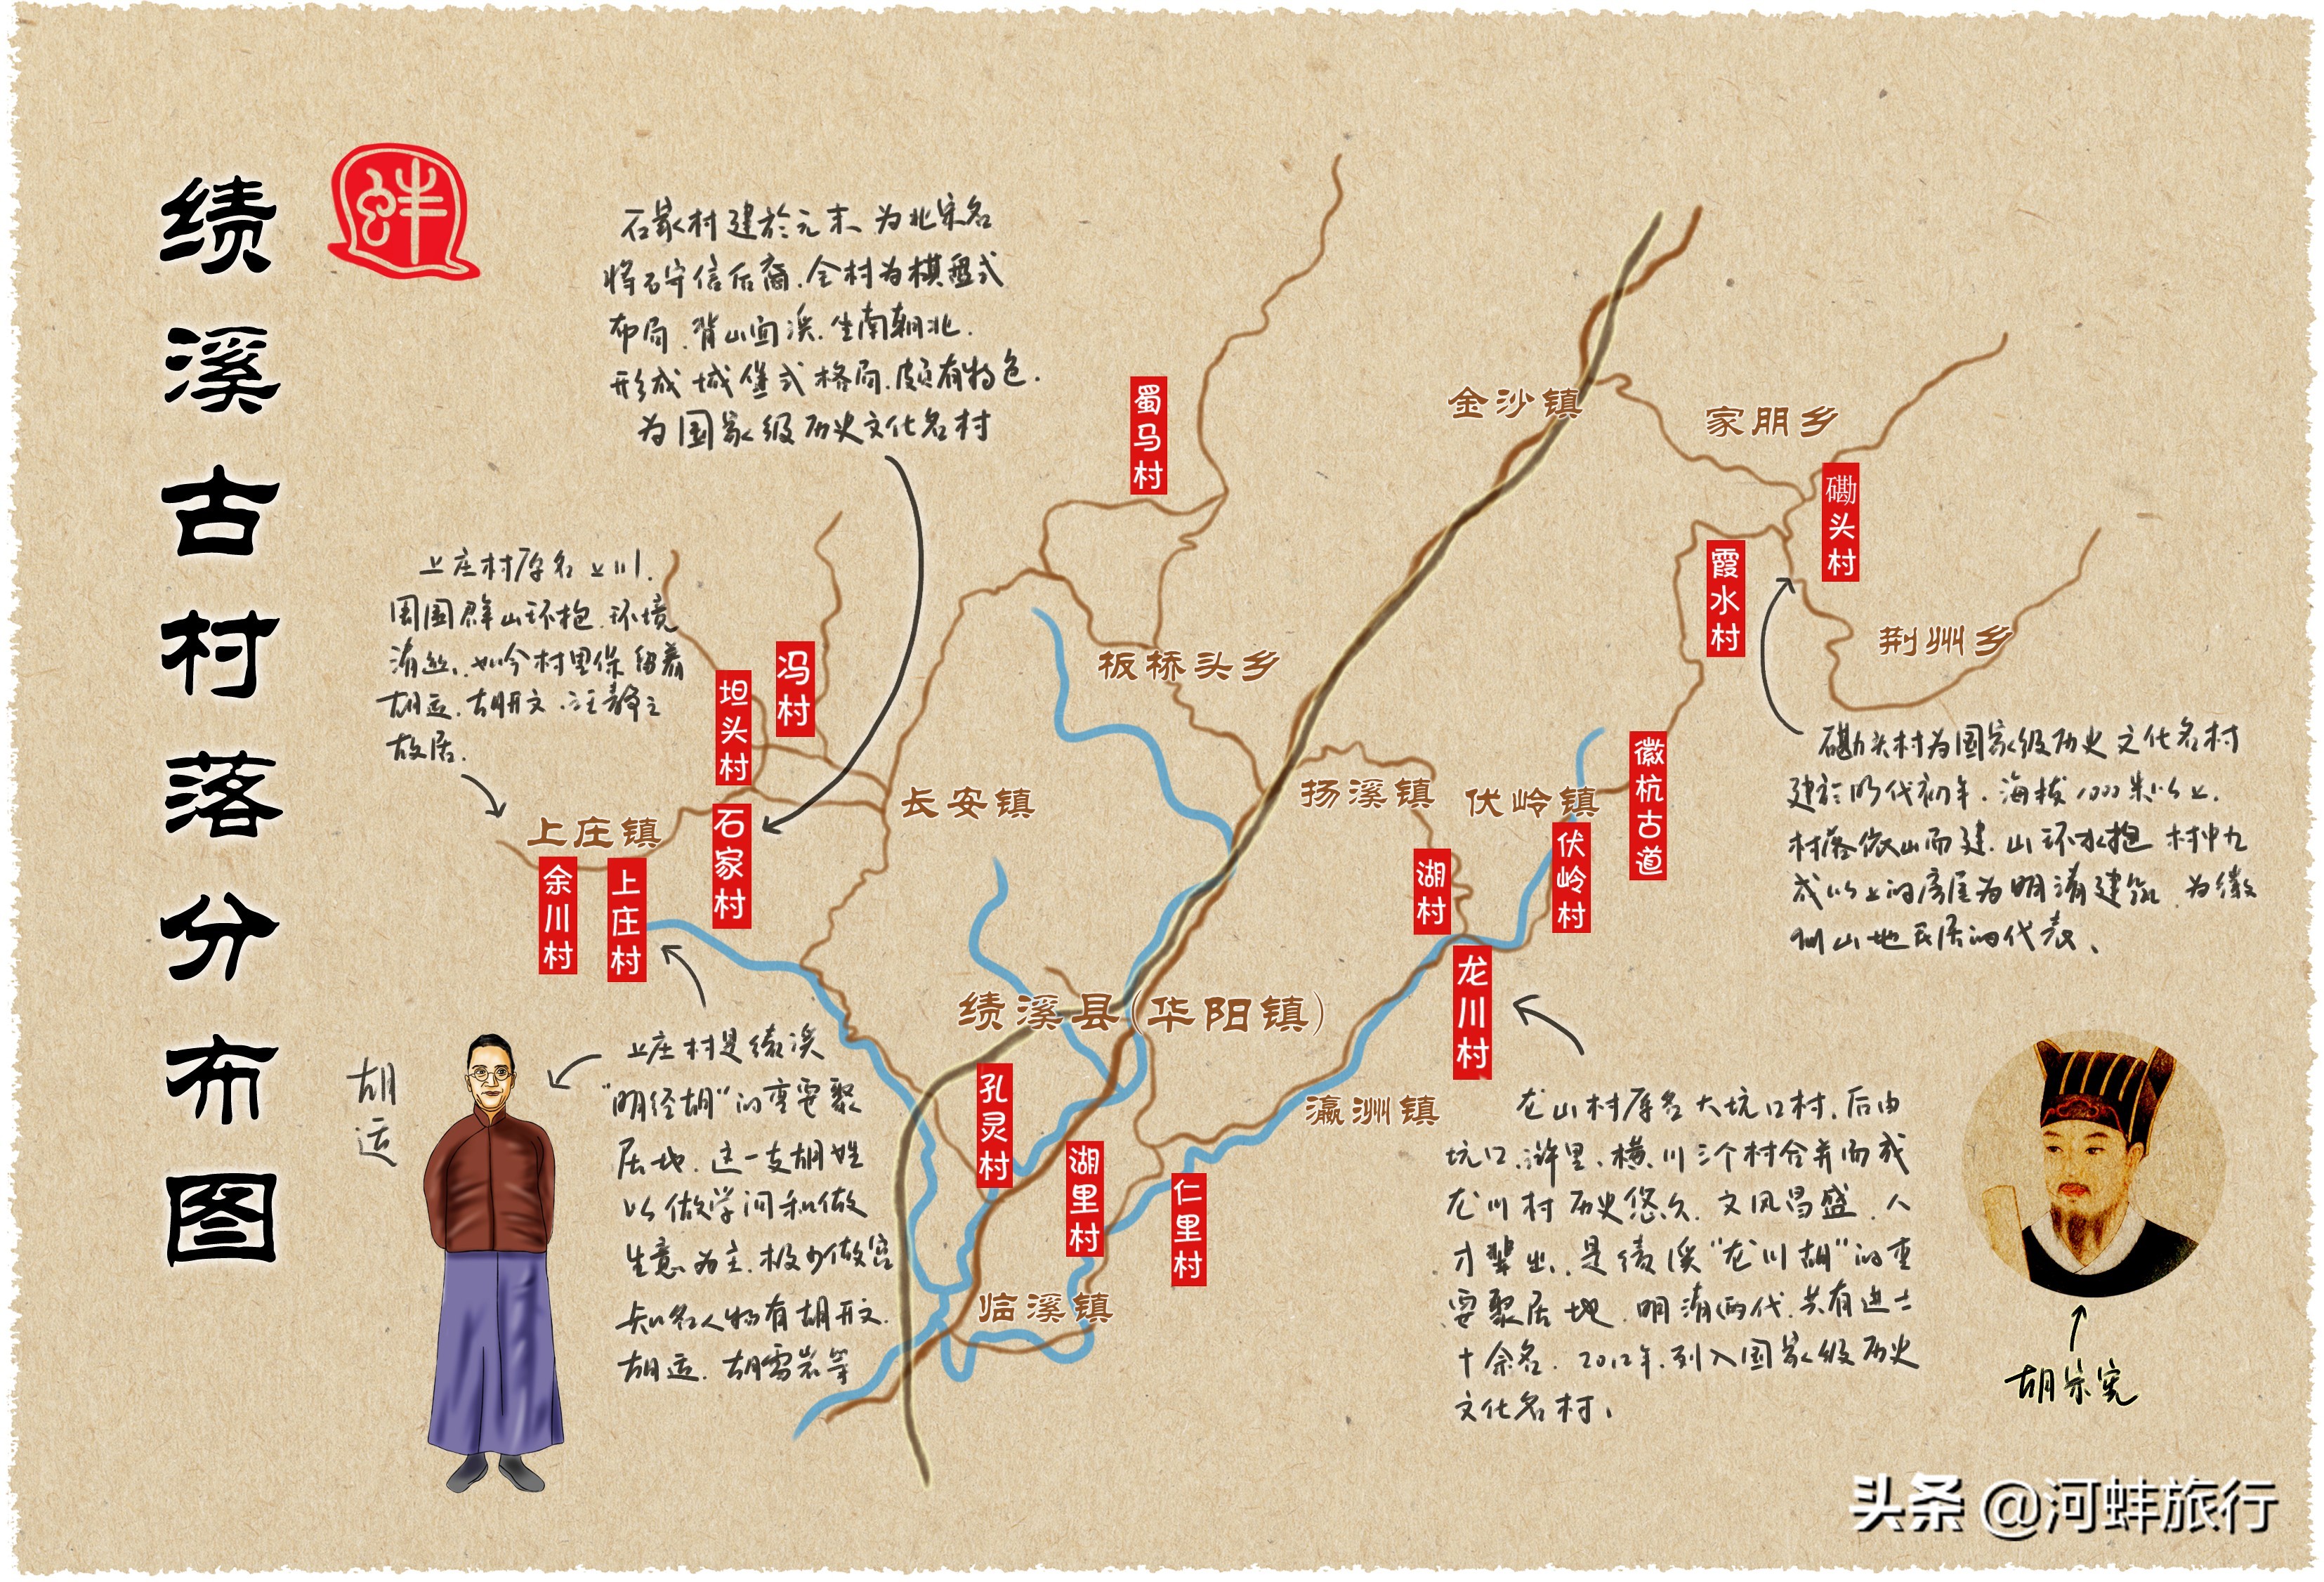 绩溪古村落分布图
蚌
石家村建於元末、为北宋名
将石守信后裔.全村为棋盘式
布局.背山面溪.坐南朝北.
形成城堡式格局.颇有特色.
为国家级历史文化名村
上庄村原名上川.
周围群山环抱.环境
清丝.如今村里保留着
胡适.胡开文.汪静之
故居.
蜀马村
金沙镇
家朋乡
磡头村
霞水村
荆州乡
板桥头乡
冯村
坦头村
石家村
长安镇
上庄镇
余川村
上庄村
扬溪镇
伏岭镇
徽杭古道
伏岭村
湖村
龙川村
磡头村为国家级历史文化名村
建於明代初年.海拔1000米以上.
村落依山而建.山环水抱 村中九
成以上的房屋为明清建筑.为徽
州山地民居的代表、
绩溪县(华阳镇)
孔灵村
湖里村
仁里村
瀛洲镇
临溪镇
胡适
上庄村是绩溪
“明经胡”的重要聚
居地.这一支胡姓
以做学问和做
生意为主.极少做官
知名人物有胡开文.
胡适.胡雪岩等
龙山村原名大坑口村.后由
坑口、浒里、横川三个村合并而成
龙川村历史悠久.文风昌盛.人
才辈出.是绩溪“龙川胡”的重
要聚居地.明清两代.共有进士
十余名.2012年.列入国家级历史
文化名村.
胡宗宪
头条 @河蚌旅行